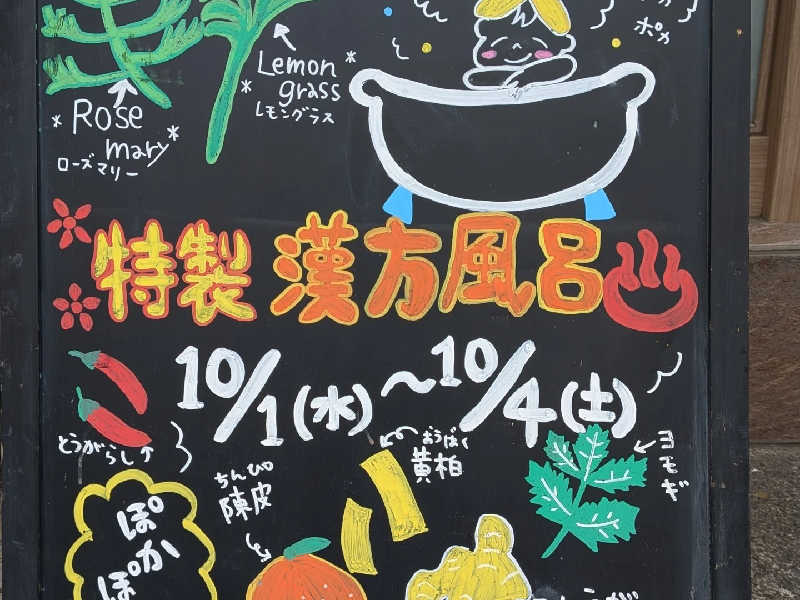 ポカ
Lemon
grass
レモングラス
Rose
mary
ローズマリー
特製 漢方風呂
10/1(水)～10/4(土)
とうがらし
ちんぴ
陳皮
おうばく
黄柏
ヨモギ
ぽか
ぽ